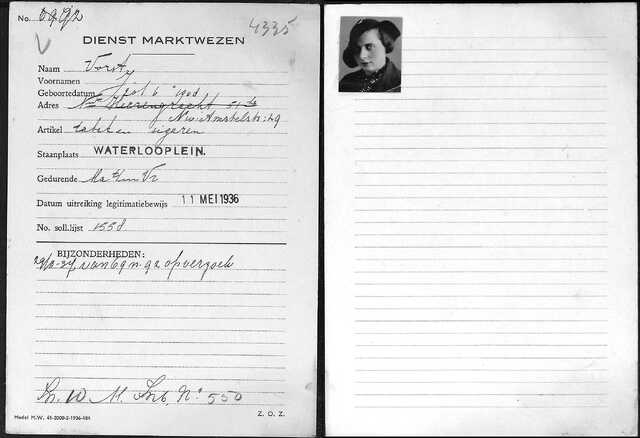 No. 0992
4335
DIENST MARKTWEZEN
Naam Vorst,
Voornamen
Geboortedatum 6 1908
Adres Nwe Heerengracht 51
Nw. Amstelstr. 29
Artikel sigaren
Staanplaats WATERLOOPLEIN.
Gedurende Ma t/m Vr
Datum uitreiking legitimatiebewijs 11 MEI 1936
No. soll.lijst 1558
BIJZONDERHEDEN:
van 69 n. 92 op verzoek
W. M. No 550
Model M.W. 41-2000-2-1936-104
Z. O. Z.